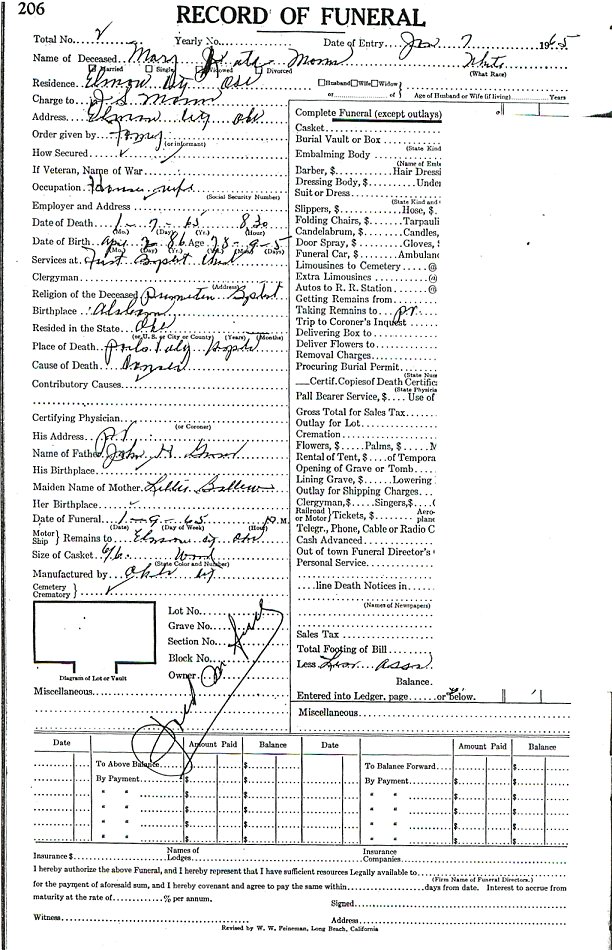 206
RECORD OF FUNERAL
Total No. 2 Yearly No. Date of Entry Jan 7 1965
Name of Deceased Mary Moore White
Married Single Widowed Divorced (What Race)
Residence Elmore City Okl Husband Wife Widow
or of Age of Husband or Wife (if living) Years
Charge to J. S. Moore
Address Elmore City Okl
Order given by Family
(or informant)
How Secured
If Veteran, Name of War
Occupation House wife
(Social Security Number)
Employer and Address
Date of Death 1 - 7 - 65 8 30
(Mo.) (Day) (Yr.) (Hour)
Date of Birth Apr 2 86 Age 78 - 9 - 5
(Mo.) (Day) (Yr.) (Mo.) (Days)
Services at First Baptist Church
(Address)
Clergyman
Religion of the Deceased Baptist
Birthplace Alabama
Resided in the State Okl
(or U. S. or City or County) (Years) (Months)
Place of Death Pauls Valy Hospital
Cause of Death
Contributory Causes
Certifying Physician
(or Coroner)
His Address P.V.
Name of Father John H.
His Birthplace
Maiden Name of Mother Ballew
Her Birthplace
Date of Funeral 1 - 9 - 65 M.
(Date) (Day of Week) (Hour)
Motor Ship } Remains to Elmore Cy Okl
Size of Casket 6/6 Wood
(State Color and Number)
Manufactured by Okla
Cemetery
Crematory }
Lot No.
Grave No.
Section No.
Block No.
Owner
Diagram of Lot or Vault
Miscellaneous
Complete Funeral (except outlays)
Casket
Burial Vault or Box
(State Kind
Embalming Body
(Name of Emb
Barber, $ Hair Dressi
Dressing Body, $ Unde
Suit or Dress
(State Kind and
Slippers, $ Hose, $
Folding Chairs, $ Tarpauli
Candelabrum, $ Candles,
Door Spray, $ Gloves, $
Funeral Car, $ Ambulanc
Limousines to Cemetery @
Extra Limousines @
Autos to R. R. Station @
Getting Remains from
Taking Remains to P.V.
Trip to Coroner's Inquest
Delivering Box to
Deliver Flowers to
Removal Charges
Procuring Burial Permit
(State Num
Certif. Copies of Death Certific
(State Physicia
Pall Bearer Service, $ Use of
Gross Total for Sales Tax
Outlay for Lot
Cremation
Flowers, $ Palms, $ M
Rental of Tent, $ of Tempora
Opening of Grave or Tomb
Lining Grave, $ Lowering
Outlay for Shipping Charges
Clergyman, $ Singers, $
Railroad or Motor } Tickets, $ Aero- plane
Telegr., Phone, Cable or Radio C
Cash Advanced
Out of town Funeral Director's
Personal Service
line Death Notices in
(Names of Newspapers)
Sales Tax
Total Footing of Bill
Less Assn
Balance
Entered into Ledger, page or below.
Miscellaneous
Date Amount Paid Balance Date Amount Paid Balance
To Above Balance $ To Balance Forward $
By Payment $ $ By Payment $ $
" " $ $ " " $ $
" " $ $ " " $ $
" " $ $ " " $ $
" " $ $ " " $ $
Insurance $ Names of Lodges Insurance Companies
I hereby authorize the above Funeral, and I hereby represent that I have sufficient resources Legally available to
(Firm Name of Funeral Directors.)
for the payment of aforesaid sum, and I hereby covenant and agree to pay the same within days from date. Interest to accrue from
maturity at the rate of % per annum. Signed
Witness Address
Revised by W. W. Feineman, Long Beach, California